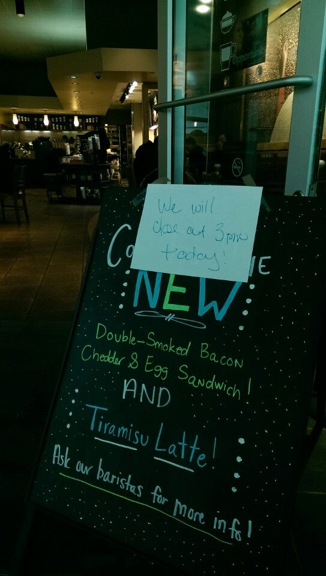 We will
close at 3pm
today!
NEW
Double-Smoked Bacon
Chedder & Egg Sandwich!
AND
Tiramisu Latte!
Ask our baristas for more info!